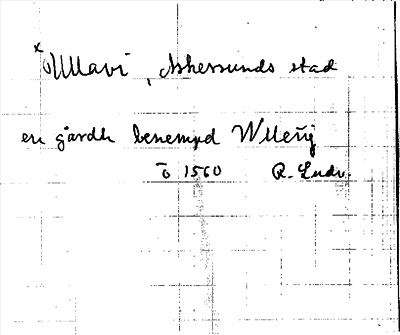 x Ullavi, Askersunds stad
en gårdh benempd Wlleńj
ō 1560 R. Ludv.